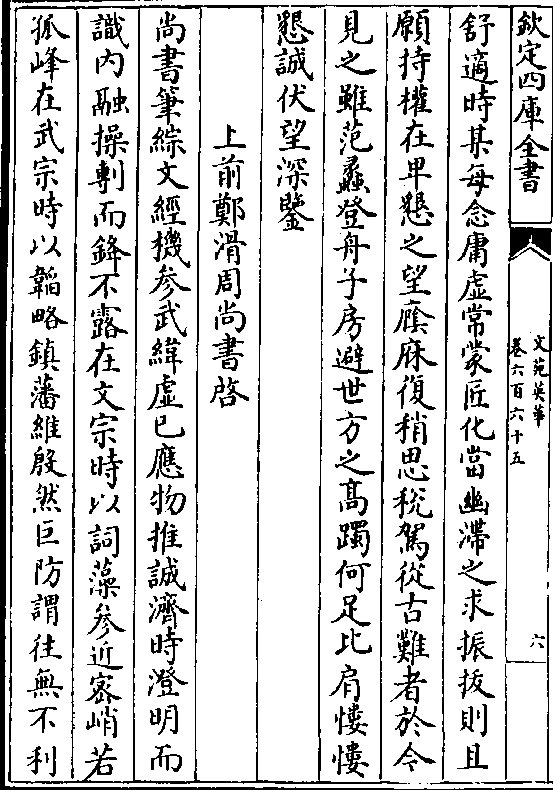 欽定四庫全書
文苑英華
卷六百六十五
六
舒適時某每念庸虚常蒙匠化當幽滯之求振抜則且
願持權在卑懇之望廕庥復稍思稅駕從古難者於今
見之雖范蠡登舟子房避世方之髙躅何足比肩悽悽
懇誠伏望深鑒
上前鄭滑周尚書啓
尚書筆綜文經機参武緯虚已應物推誠濟時澄明而
識内融操剸而鋒不露在文宗時以詞藻參近密峭若
孤峰在武宗時以韜略鎮藩維殷然巨防謂往無不利